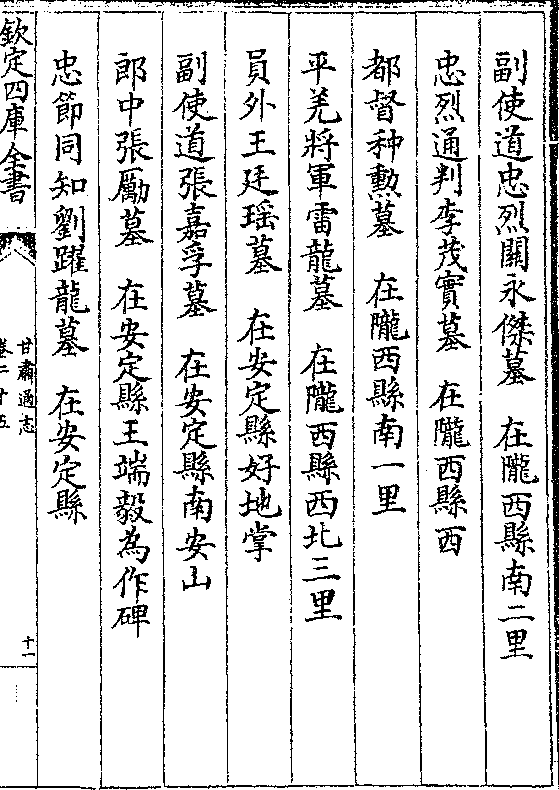 副使道忠烈關永傑墓　在隴西縣南二里
忠烈通判李茂實墓　在隴西縣西
都督种勲墓　在隴西縣南一里
平羌將軍雷龍墓　在隴西縣西北三里
員外王廷瑶墓　在安定縣好地掌
副使道張嘉孚墓　在安定縣南安山
郎中張勵墓　在安定縣王端毅為作碑
忠節同知劉躍龍墓　在安定縣
欽定四庫全書
甘肅通志
卷二十五
十一